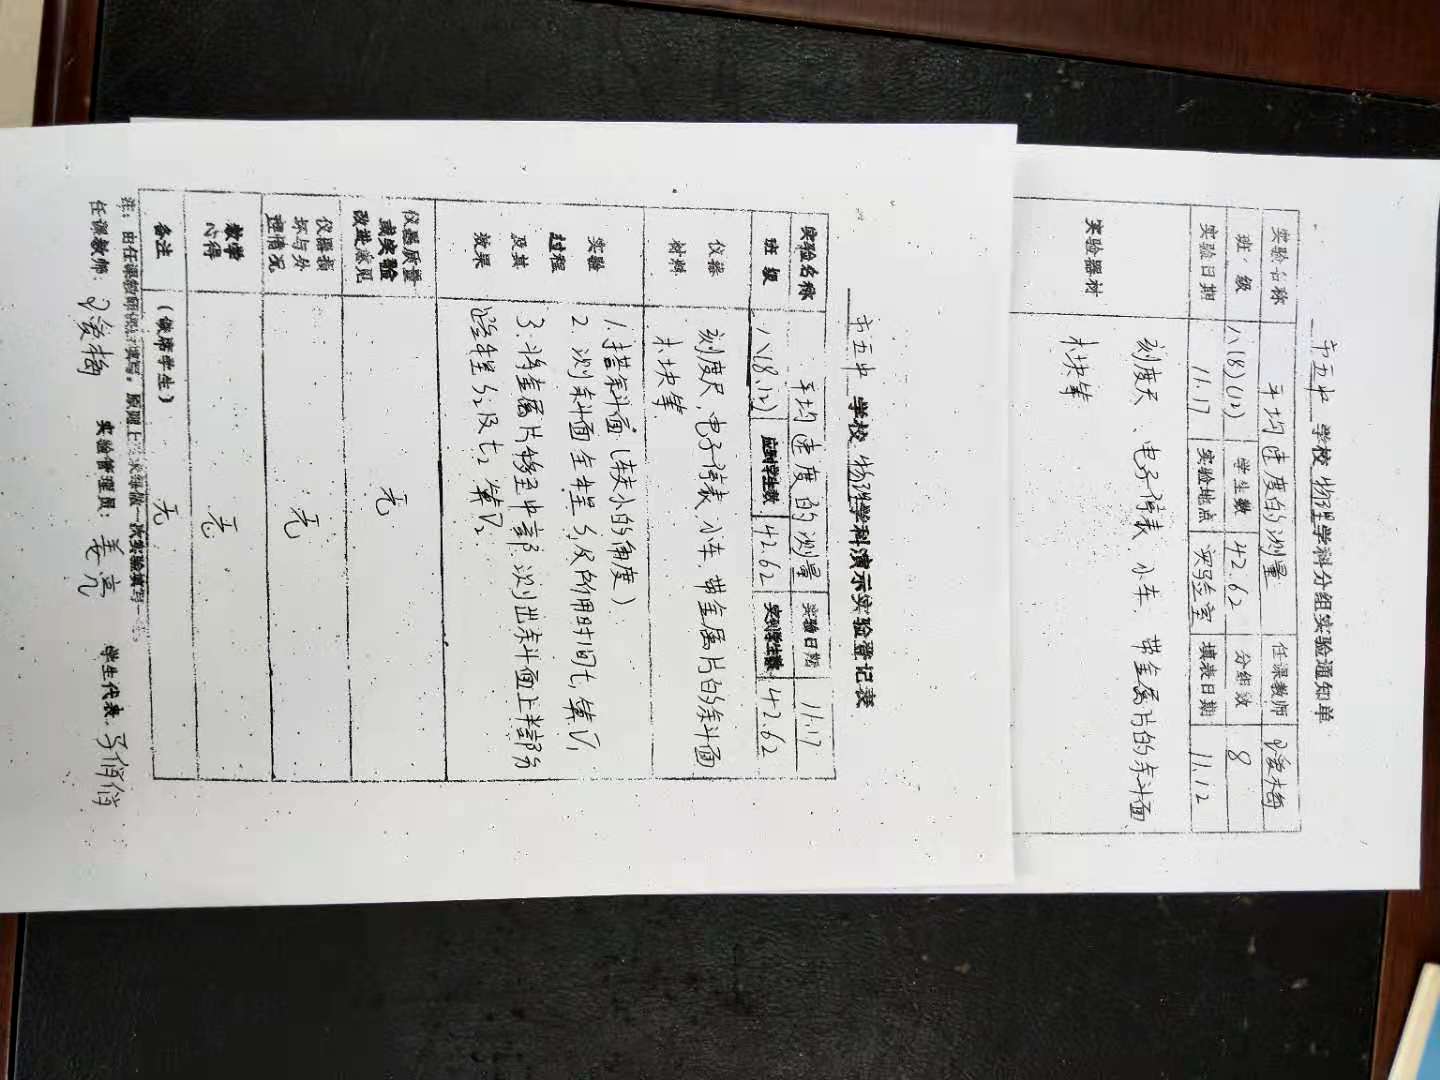 市五中 学校 物理学科分组实验通知单
实验名称 平均速度的测量 任课教师
班级 八(8)(12) 学生数 42.62 分组数 8
实验日期 11.17 实验地点 实验室 填表日期 11.12
实验器材
刻度尺、电子停表、小车、带金属片的斜面、
木块等
市五中 学校 物理学科演示实验登记表
实验名称 平均速度的测量 实验日期 11.17
班级 八(8.12) 应到学生数 42.62 实到学生数 42.62
仪器
材料
刻度尺、电子停表、小车、带金属片的斜面
木块等
实验
过程
及其
效果
1.搭斜面(夹小的角度)
2.测斜面全程S,及所用时间t,算V,
3.将金属片移至中部,测出斜面上半部分
路程S₂及t₂ 算V₂
仪器质量
或实验
改进意见
无
仪器损
坏与处
理情况
无
教学
心得
无
备注 (缺席学生) 无
注:由任课教师 填写。原则上 做一次实验填写一
任课教师: 实验管理员:姜亮 学生代表:马俏俏